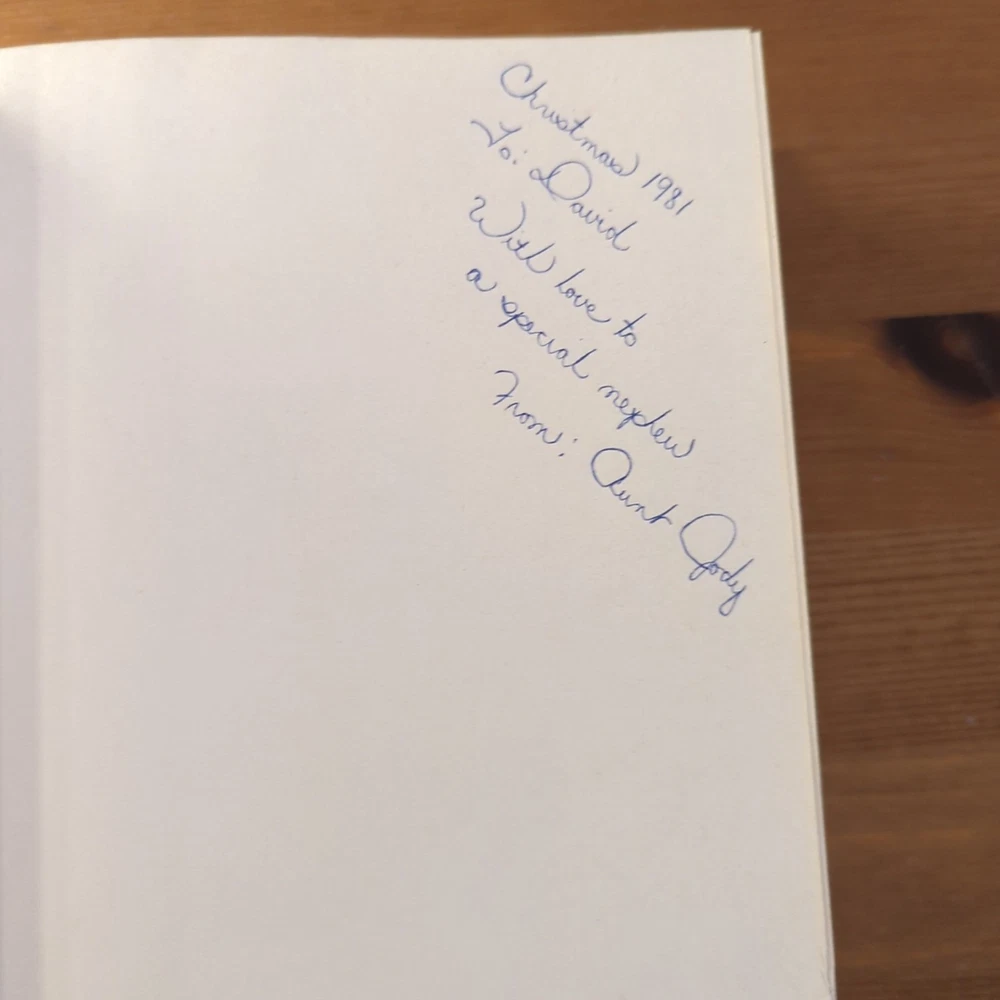 Christmas 1981
To: David
With love to
a special nephew
From: Aunt Jody